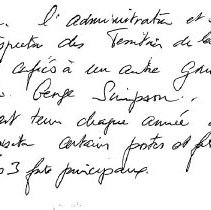 l'administration et
des Territoires de la
confiés à un autre
George Simpson.
tenu chaque année
certains postes et
3 forts principaux.